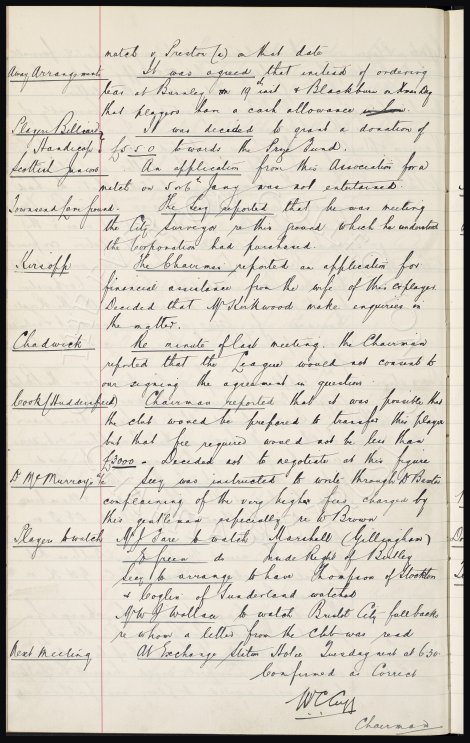 match v. Preston (a) on that date
Away Arrangements It was agreed that instead of ordering
teas at Burnley on 19th inst & Blackburn on Xmas Day
that players have a cash allowance
Player Billiard It was decided to grant a donation of
Handicap £5.5.0 towards the Prize Fund.
Scottish Juniors An application from this Association for a
match on 5 or 6th Jany was not entertained.
Townsend Lane ground. The Secy reported that he was meeting
the City Surveyor re this ground which he understood
the Corporation had purchased.
Kirsopp The Chairman reported an application for
financial assistance from the wife of this explayer.
Decided that Mr Kirkwood make enquiries in
the matter.
Chadwick Re minute of last meeting, the Chairman
reported that the League would not consent to
our signing the agreement in question.
Cook (Huddersfield) Chairman reported that it was possible that
the club would be prepared to transfer this player
but that fee required would not be less than
£3000. Decided not to negotiate at this figure
Dr McMurray Secy was instructed to write through Dr Baxter
complaining of the very high fees charged by
this gentleman especially re W Brown.
Players to watch Mr J Fare to watch Marshall (Gillingham)
E Green do Inside Right of Bentley
Secy to arrange to have Thompson of Stockton
& Coglin of Sunderland watched
Mr W J Wallace to watch Bristol City full backs
re whom a letter from the club was read
Next Meeting At Exchange Station Hotel Tuesday next at 6.30.
Confirmed as Correct
W C Cuff
Chairman